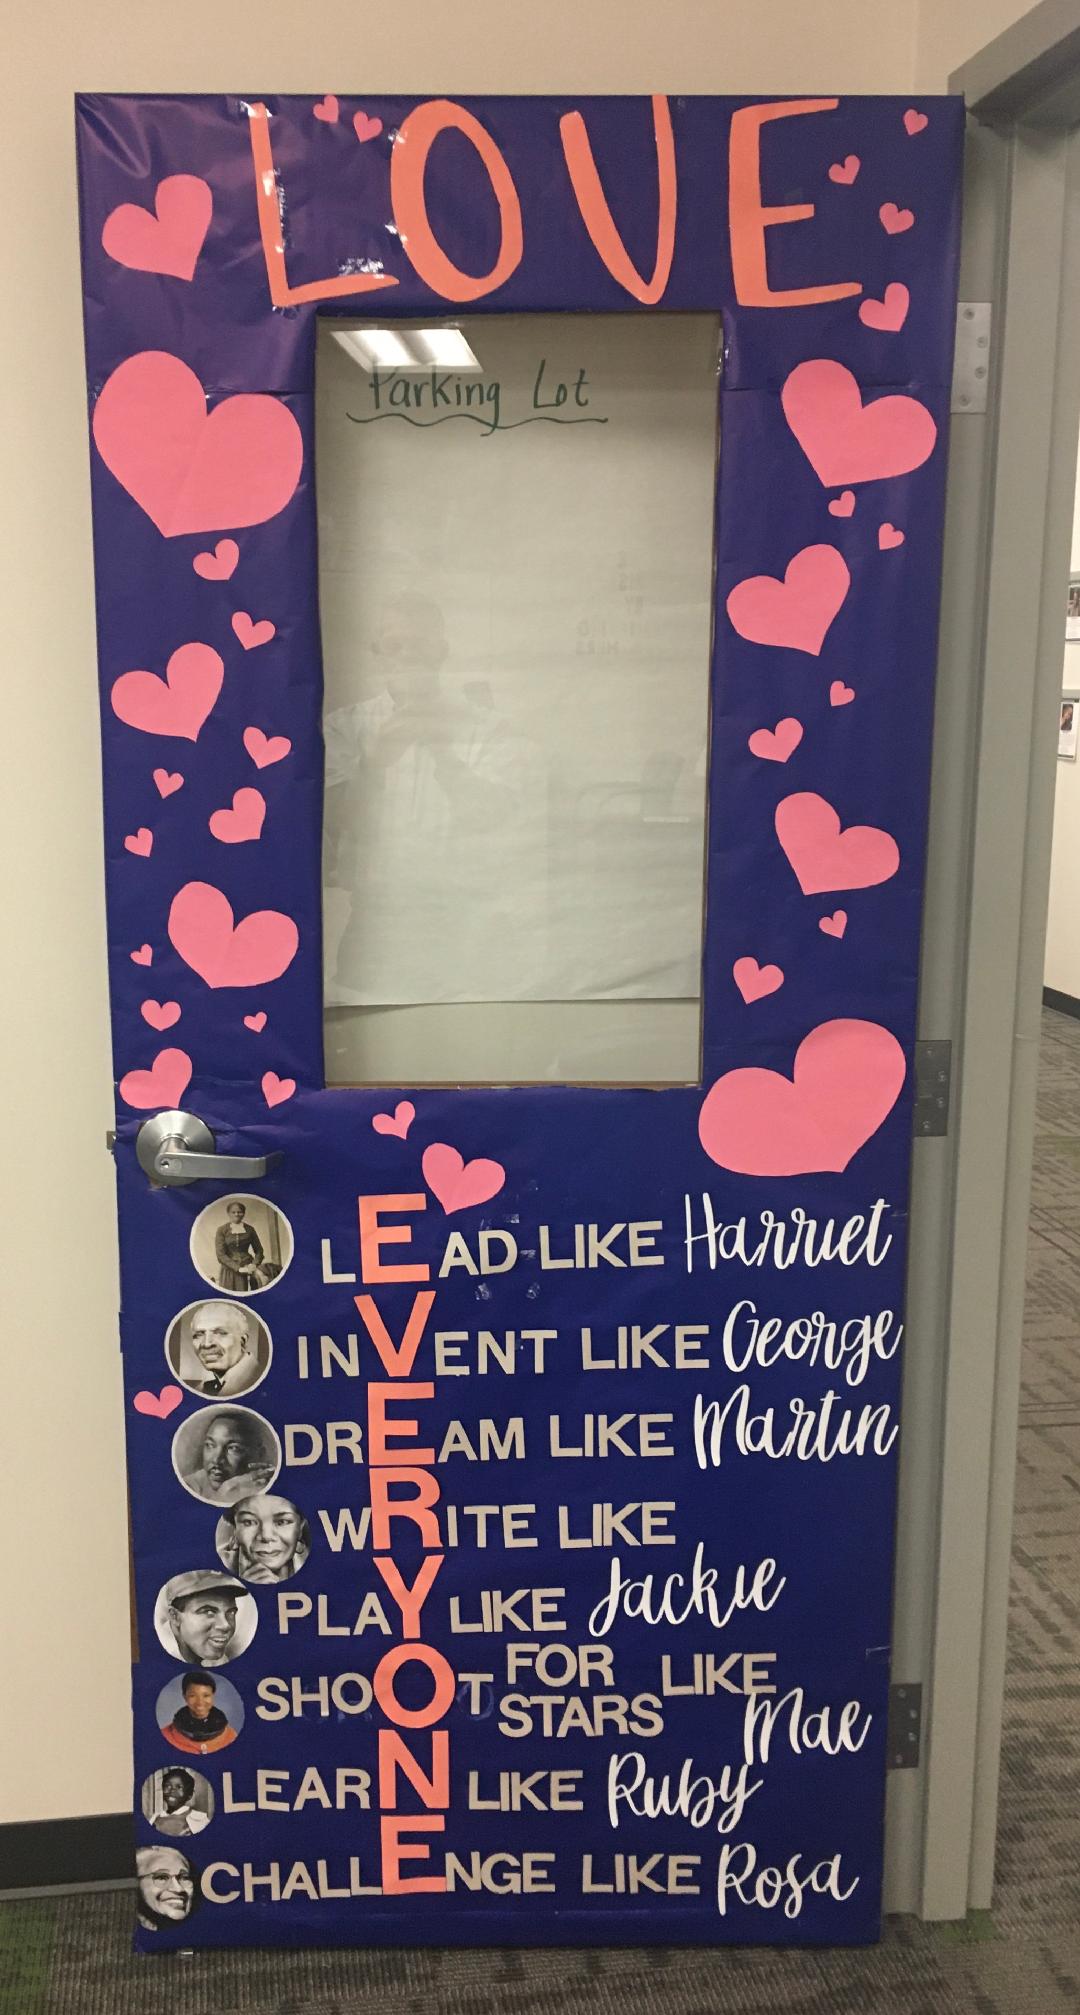 LOVE
Parking Lot
LEAD LIKE Harriet
INVENT LIKE George
DREAM LIKE Martin
WRITE LIKE
PLAY LIKE Jackie
SHOOT FOR STARS LIKE Mae
LEARN LIKE Ruby
CHALLENGE LIKE Rosa